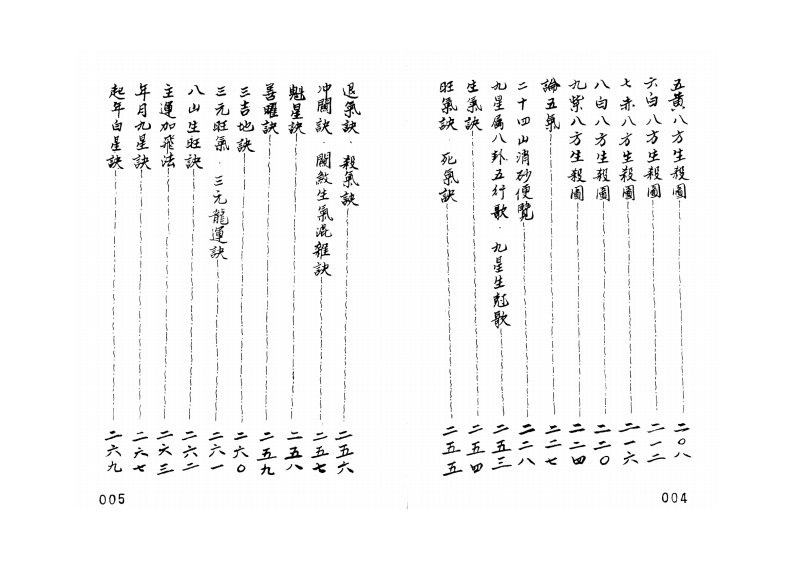 五黃八方生殺圖 二〇八
六白八方生殺圖 二一二
七赤八方生殺圖 二一六
八白八方生殺圖 二二〇
九紫八方生殺圖 二二四
論五氣 二二七
二十四山消砂便覽 二二八
九星属八卦五行歌·九星生尅歌 二五三
生氣訣 二五四
旺氣訣 死氣訣 二五五
004
退氣訣·殺氣訣 二五六
冲關訣·關煞生氣混雜訣 二五七
魁星訣 二五八
善曜訣 二五九
三吉地訣 二六〇
三元旺氣·三元龍運訣 二六一
八山生旺訣 二六二
主運加飛法 二六三
年月九星訣 二六七
起年白星訣 二六九
005